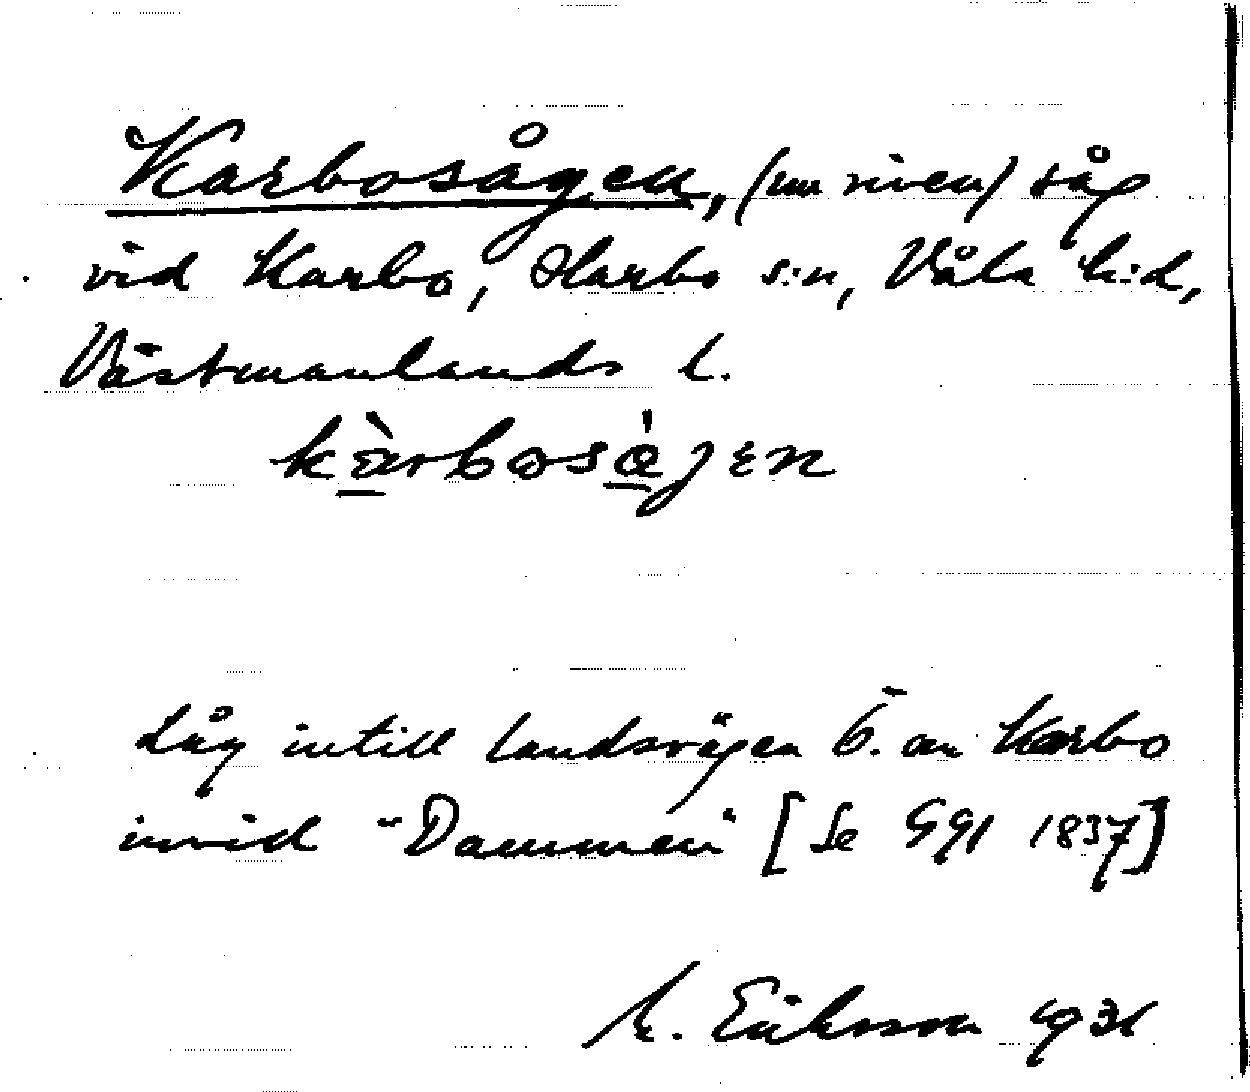 Karbosågen, (nu riven) såg
vid Karbo, Harbo s:n, Våla h:d,
Västmanlands l.
Låg intill landsvägen Ö. om Karbo
invid "Dammen" [Se GGI 1837]
Eriksson 1931